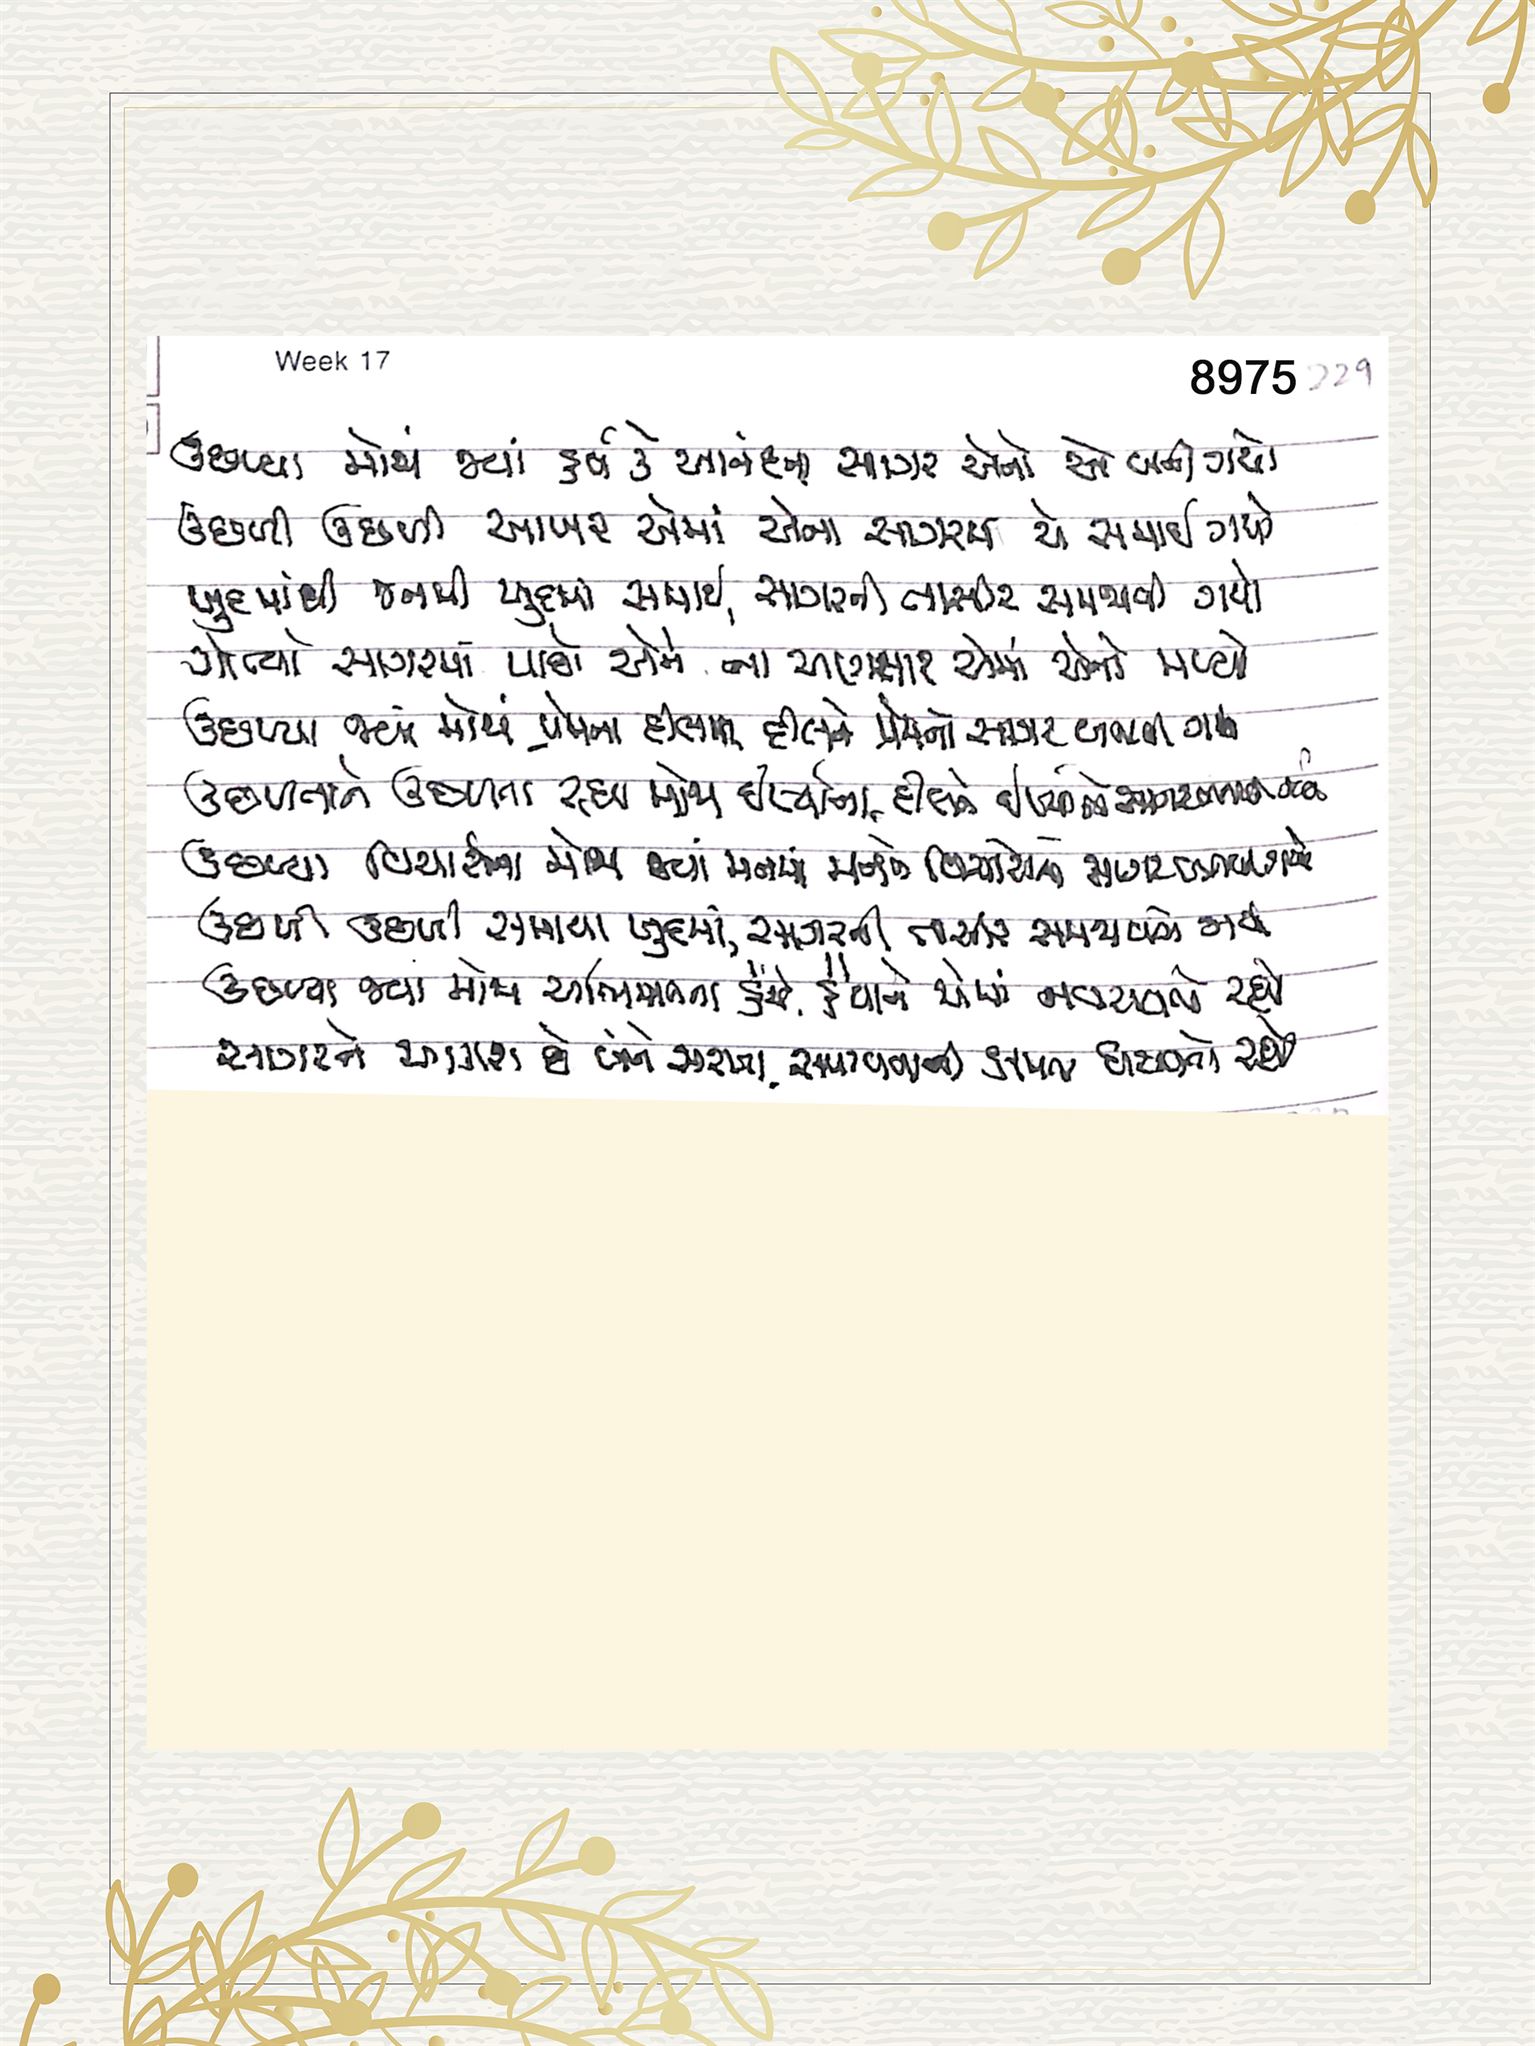 Week 17
8975 229
ઉછળ્યા મોજાં જ્યાં હર્ષ ને આનંદના સાગર એનો એ બની ગયો
ઉછળી ઉછળી આખર એમાં એના સાગરમાં એ સમાઈ ગયો
ખુદમાંથી જનમી ખુદમાં સમાઈ, સાગરની તાસીર સમજાવી ગયો
ગોત્યો સાગરમાં પાછો એને ના અણસાર એમાં એનો મળ્યો
ઉછળ્યા જ્યાં મોજાં પ્રેમના દીલમાં દીલને પ્રેમનો સાગર બનાવી ગયા
ઉછળતાને ઉછળતા રહ્યા મોજા ઈર્ષ્યાના, દીલને ઈર્ષ્યાનો સાગર બનાવી ગયા
ઉછળ્યા વિચારોના મોજા જ્યાં મનમાં મનને વિચારોનો સાગર બનાવી ગયો
ઉછળી ઉછળી સમાયા ખુદમાં, સાગરની તાસીર સમજાવી ગયા
ઉછળ્યા જ્યાં મોજા અભિમાનના હૈયે, હૈયાને એમાં રહ્યો
સાગરને આકાશ છે બંને સરખા, રહ્યો